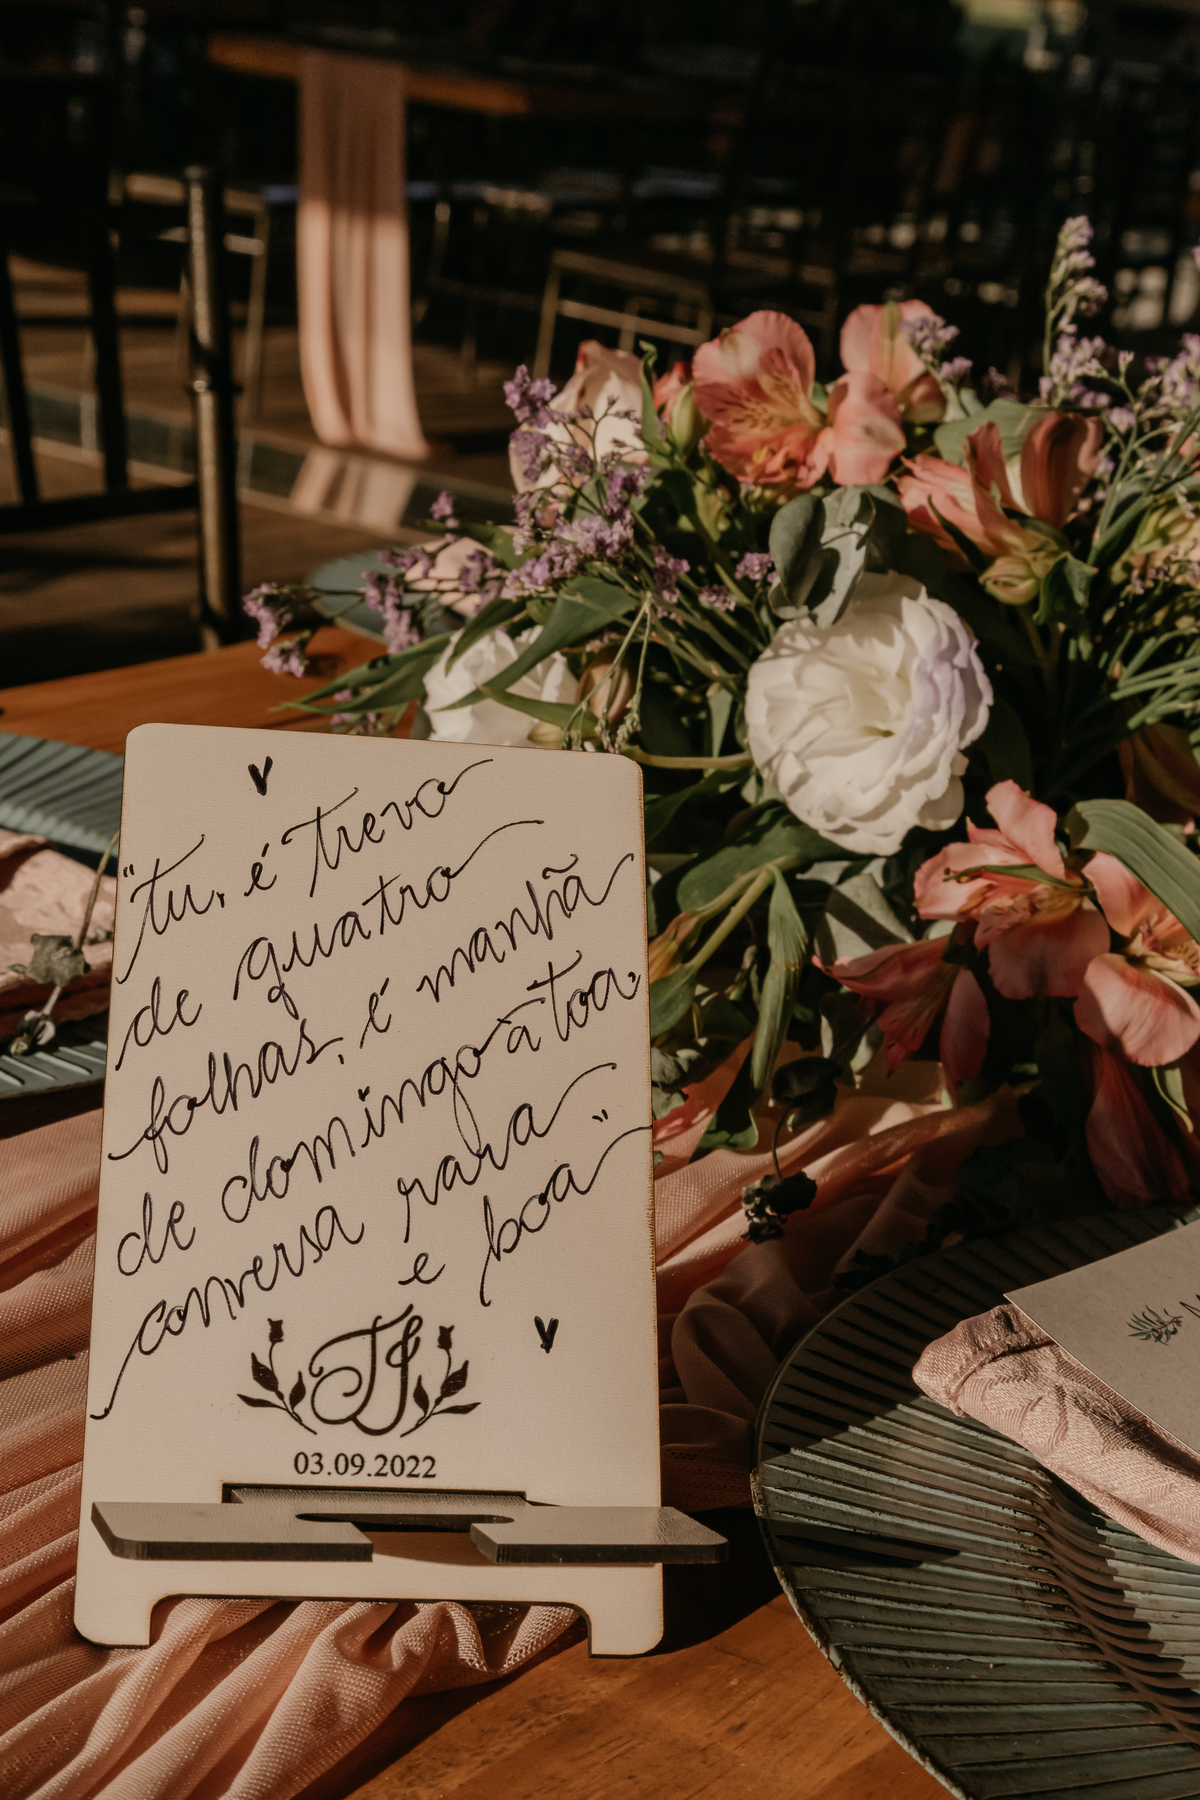 "tu, é trevo
de quatro
folhas, é manhã
de domingo à toa,
conversa rara
e boa"
TJ
03.09.2022